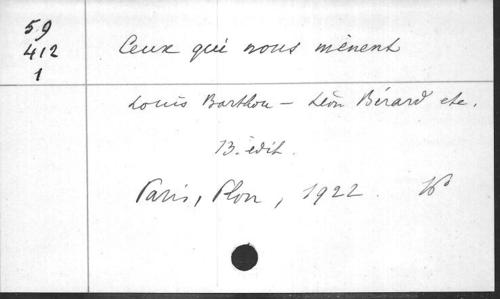 59
412
1
Ceux qui nous mènent
Louis Barthou - Léon Bérard etc.
13. édit.
Paris, Plon, 1922.